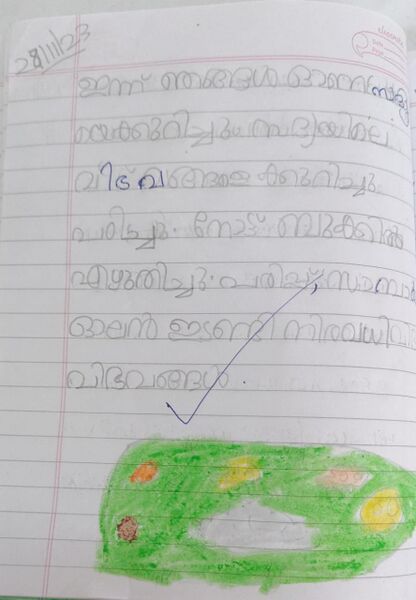 28/11/23
ഇന്ന് ഞങ്ങൾ ഓണസദ്യ
യെക്കുറിച്ചും സദ്യയിലെ
വിഭവങ്ങളെ ക്കുറിച്ചും
പഠിച്ചു. നോട്ട് ബുക്കിൽ
എഴുതിച്ചു. പരിപ്പ്, സാമ്പാർ
ഓലൻ ഇടങ്ങി നിരവധി
വിഭവങ്ങൾ.